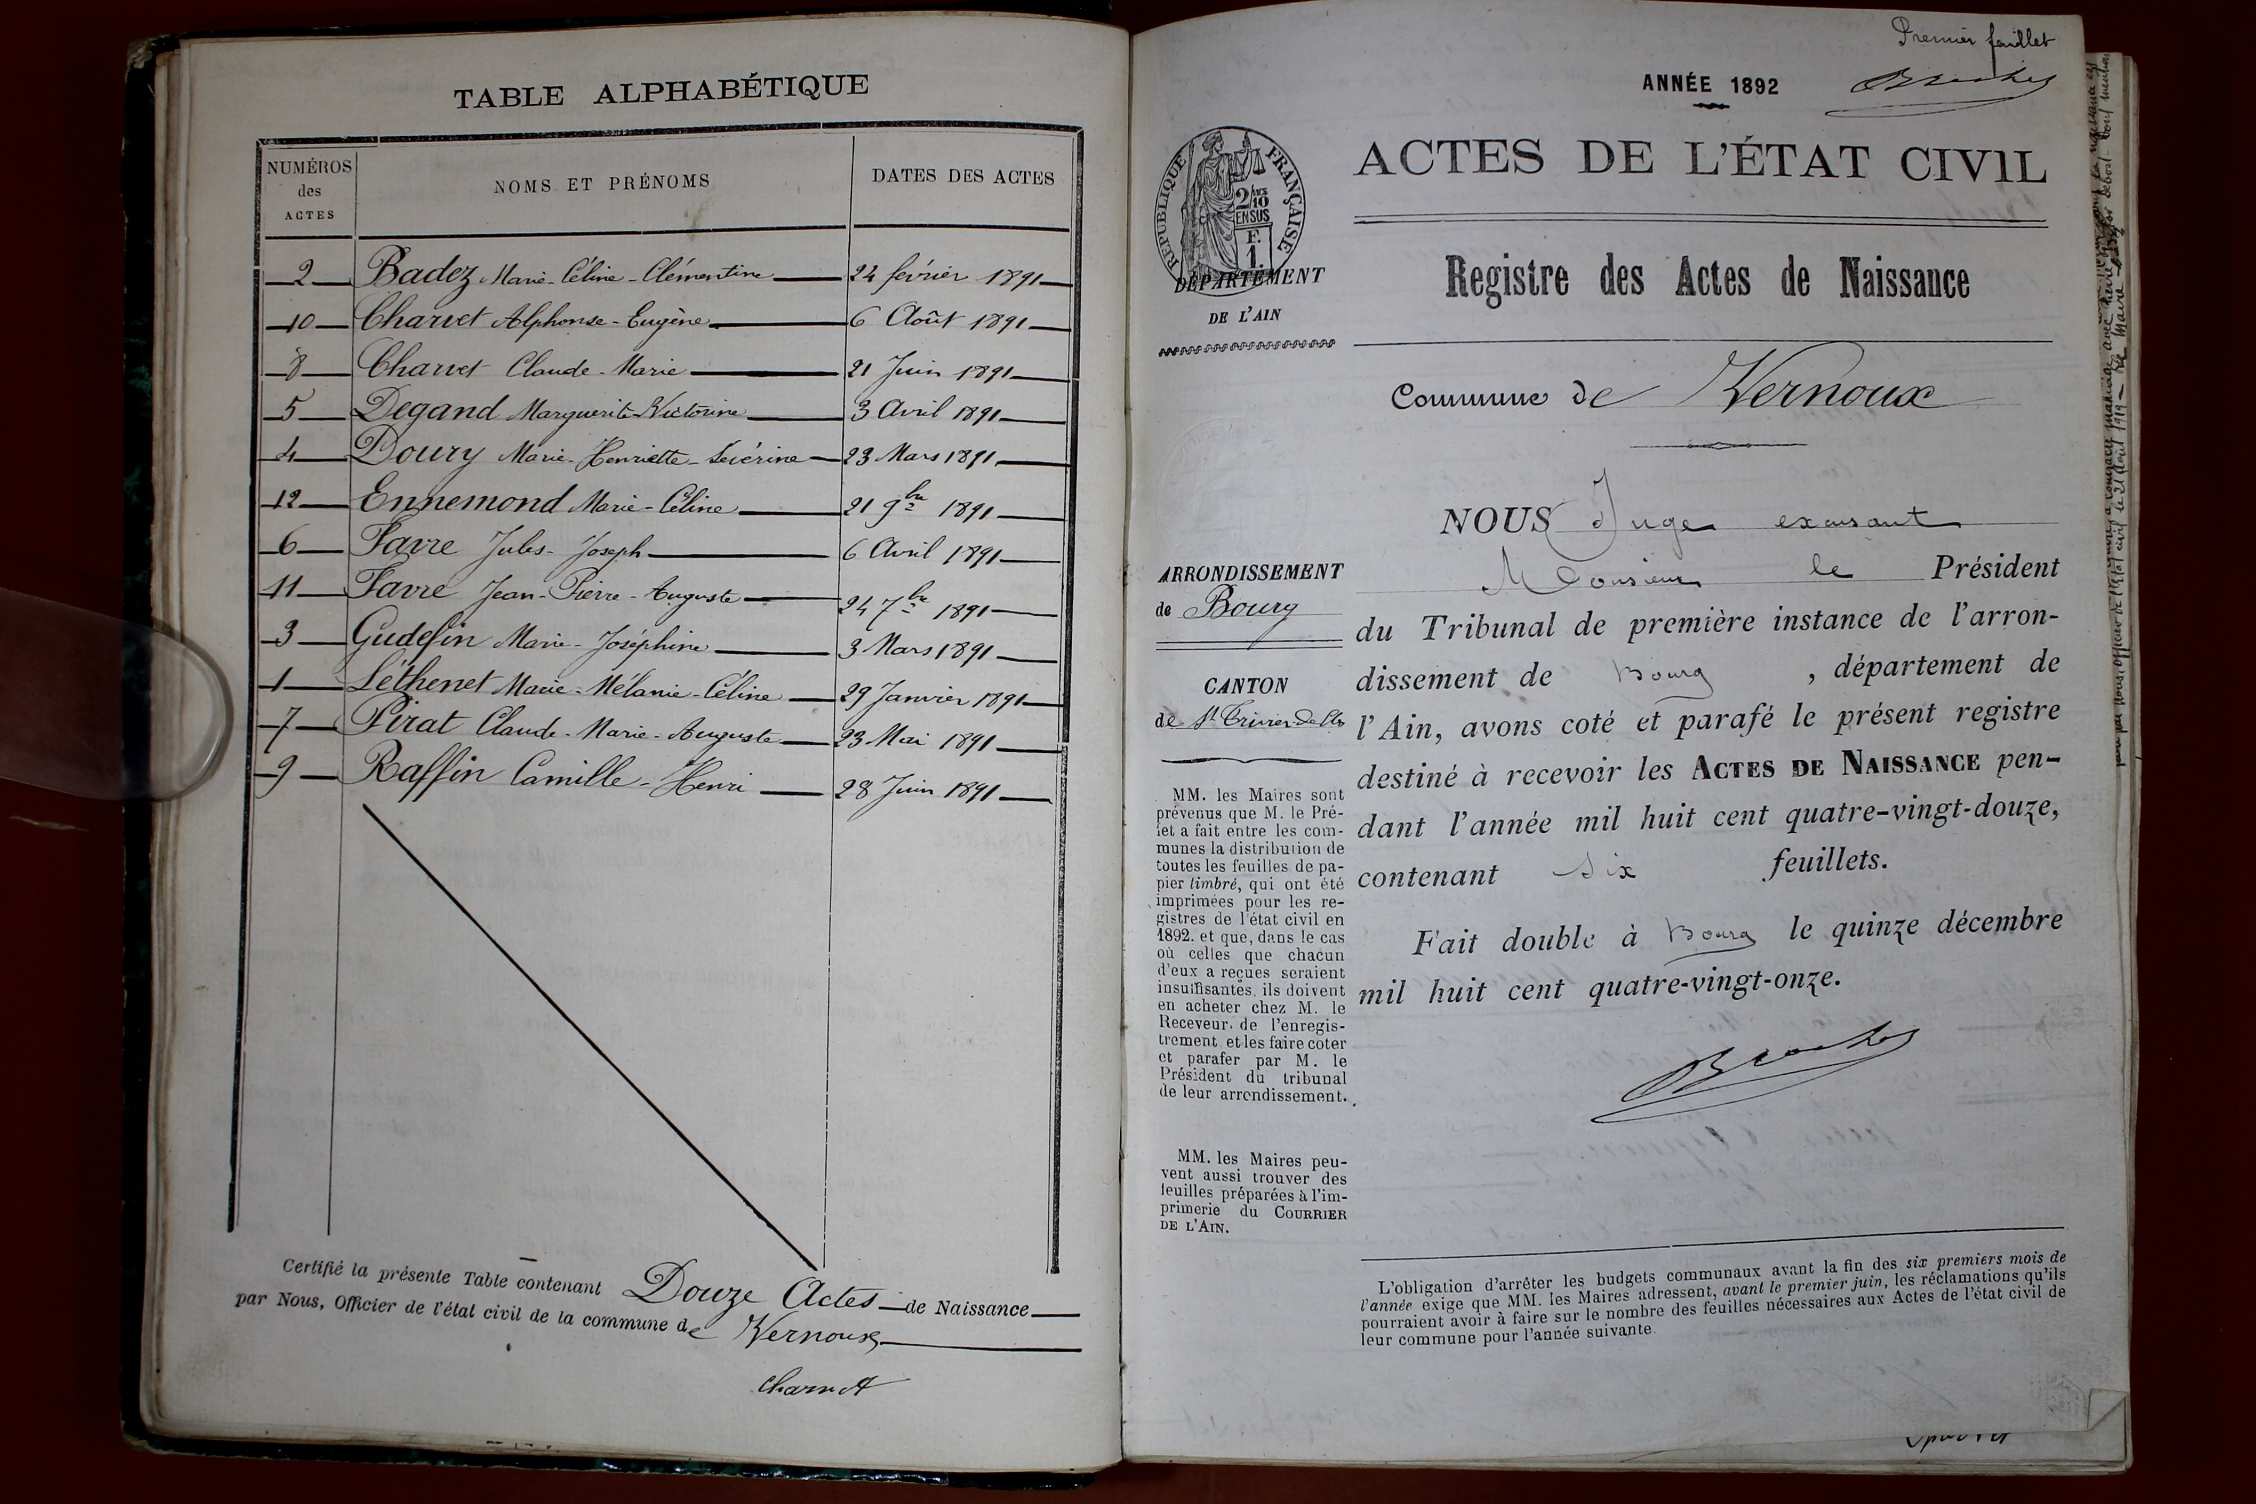 TABLE ALPHABÉTIQUE
NUMÉROS des ACTES
NOMS ET PRÉNOMS
DATES DES ACTES
2 Badez Marie-Céline-Clémentine 24 février 1891
10 Charvet Alphonse-Eugène 6 Août 1891
8 Charvet Claude-Marie 21 Juin 1891
5 Degand Marguerite-Victorine 3 Avril 1891
4 Doury Marie-Henriette-Sévérine 23 Mars 1891
12 Ennemond Marie-Céline 21 9bre 1891
6 Favre Jules-Joseph 6 Avril 1891
11 Favre Jean-Pierre-Auguste 24 7bre 1891
3 Gudefin Marie-Joséphine 3 Mars 1891
1 Léthenet Marie-Mélanie-Céline 29 Janvier 1891
7 Pirat Claude-Marie-Auguste 23 Mai 1891
9 Raffin Camille-Henri 28 Juin 1891
Certifié la présente Table contenant Douze Actes de Naissance
par Nous, Officier de l'état civil de la commune de Vernoux
Premier feuillet
ANNÉE 1892
RÉPUBLIQUE FRANÇAISE
2/10 EN SUS
F. 1.
DÉPARTEMENT
DE L'AIN
ACTES DE L'ÉTAT CIVIL
Registre des Actes de Naissance
Commune de Vernoux
ARRONDISSEMENT
de Bourg
CANTON
de St Trivier de
MM. les Maires sont
prévenus que M. le Pré-
fet a fait entre les com-
munes la distribution de
toutes les feuilles de pa-
pier timbré, qui ont été
imprimées pour les re-
gistres de l'état civil en
1892. et que, dans le cas
où celles que chacun
d'eux a reçues seraient
insuffisantes, ils doivent
en acheter chez M. le
Receveur de l'enregis-
trement et les faire coter
et parafer par M. le
Président du tribunal
de leur arrondissement.
MM. les Maires peu-
vent aussi trouver des
feuilles préparées à l'im-
primerie du COURRIER
DE L'AIN.
NOUS Juge exerçant
Monsieur le Président
du Tribunal de première instance de l'arron-
dissement de Bourg, département de
l'Ain, avons coté et parafé le présent registre
destiné à recevoir les ACTES DE NAISSANCE pen-
dant l'année mil huit cent quatre-vingt-douze,
contenant six feuillets.
Fait double à Bourg le quinze décembre
mil huit cent quatre-vingt-onze.
L'obligation d'arrêter les budgets communaux avant la fin des six premiers mois de
l'année exige que MM. les Maires adressent, avant le premier juin, les réclamations qu'ils
pourraient avoir à faire sur le nombre des feuilles nécessaires aux Actes de l'état civil de
leur commune pour l'année suivante.